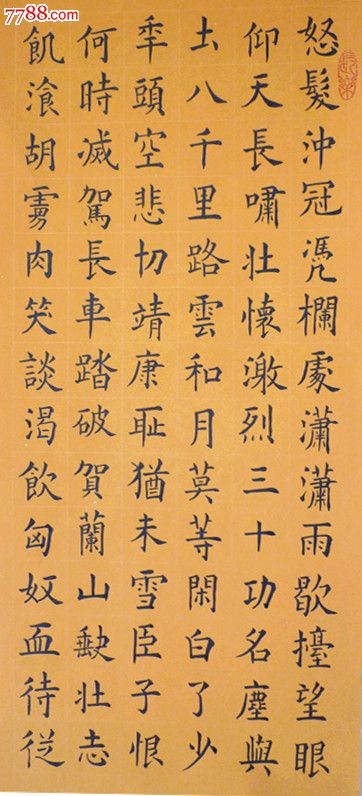 7788.com
怒髮沖冠凴欄處瀟瀟雨歇擡望眼
仰天長嘯壯懷激烈三十功名塵與
圡八千里路雲和月莫等閑白了少
秊頭空悲切靖康耻猶未雪臣子恨
何時滅駕長車踏破賀蘭山缺壯志
飢湌胡虜肉笑談渴飲匈奴血待從